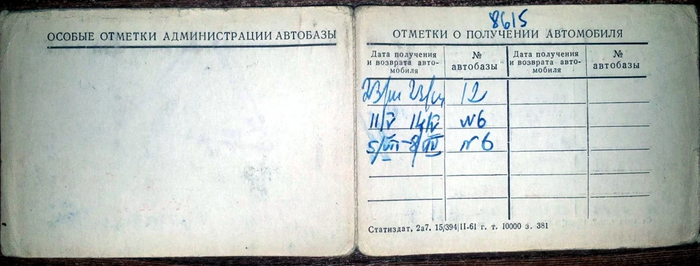 ОСОБЫЕ ОТМЕТКИ АДМИНИСТРАЦИИ АВТОБАЗЫ
8615
ОТМЕТКИ О ПОЛУЧЕНИИ АВТОМОБИЛЯ
Дата получения и возврата авто-мобиля № автобазы Дата получения и возврата авто-мобиля № автобазы
23/III 12
11/V 14/V №6
№6
Статиздат, 2а7. 15/394|II-61 г. т. 10000 з. 381